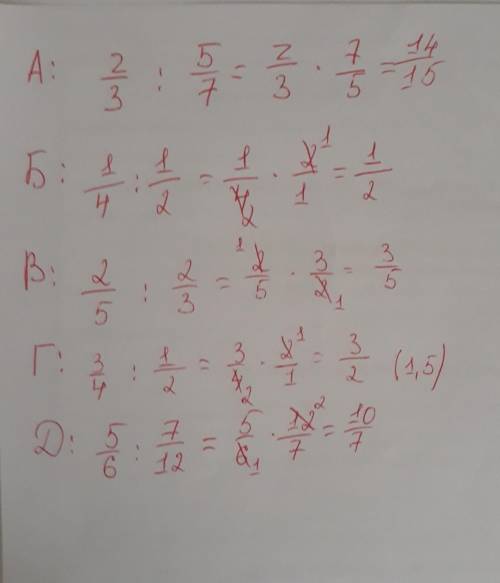 А: 2/3 : 5/7 = 2/3 · 7/5 = 14/15
Б: 1/4 : 1/2 = 1/4 2 · 2 1/1 = 1/2
В: 2/5 : 2/3 = 1 2/5 · 3/2 1 = 3/5
Г: 3/4 : 1/2 = 3/4 2 · 2 1/1 = 3/2 (1,5)
Д: 5/6 : 7/12 = 5/6 1 · 12 2/7 = 10/7